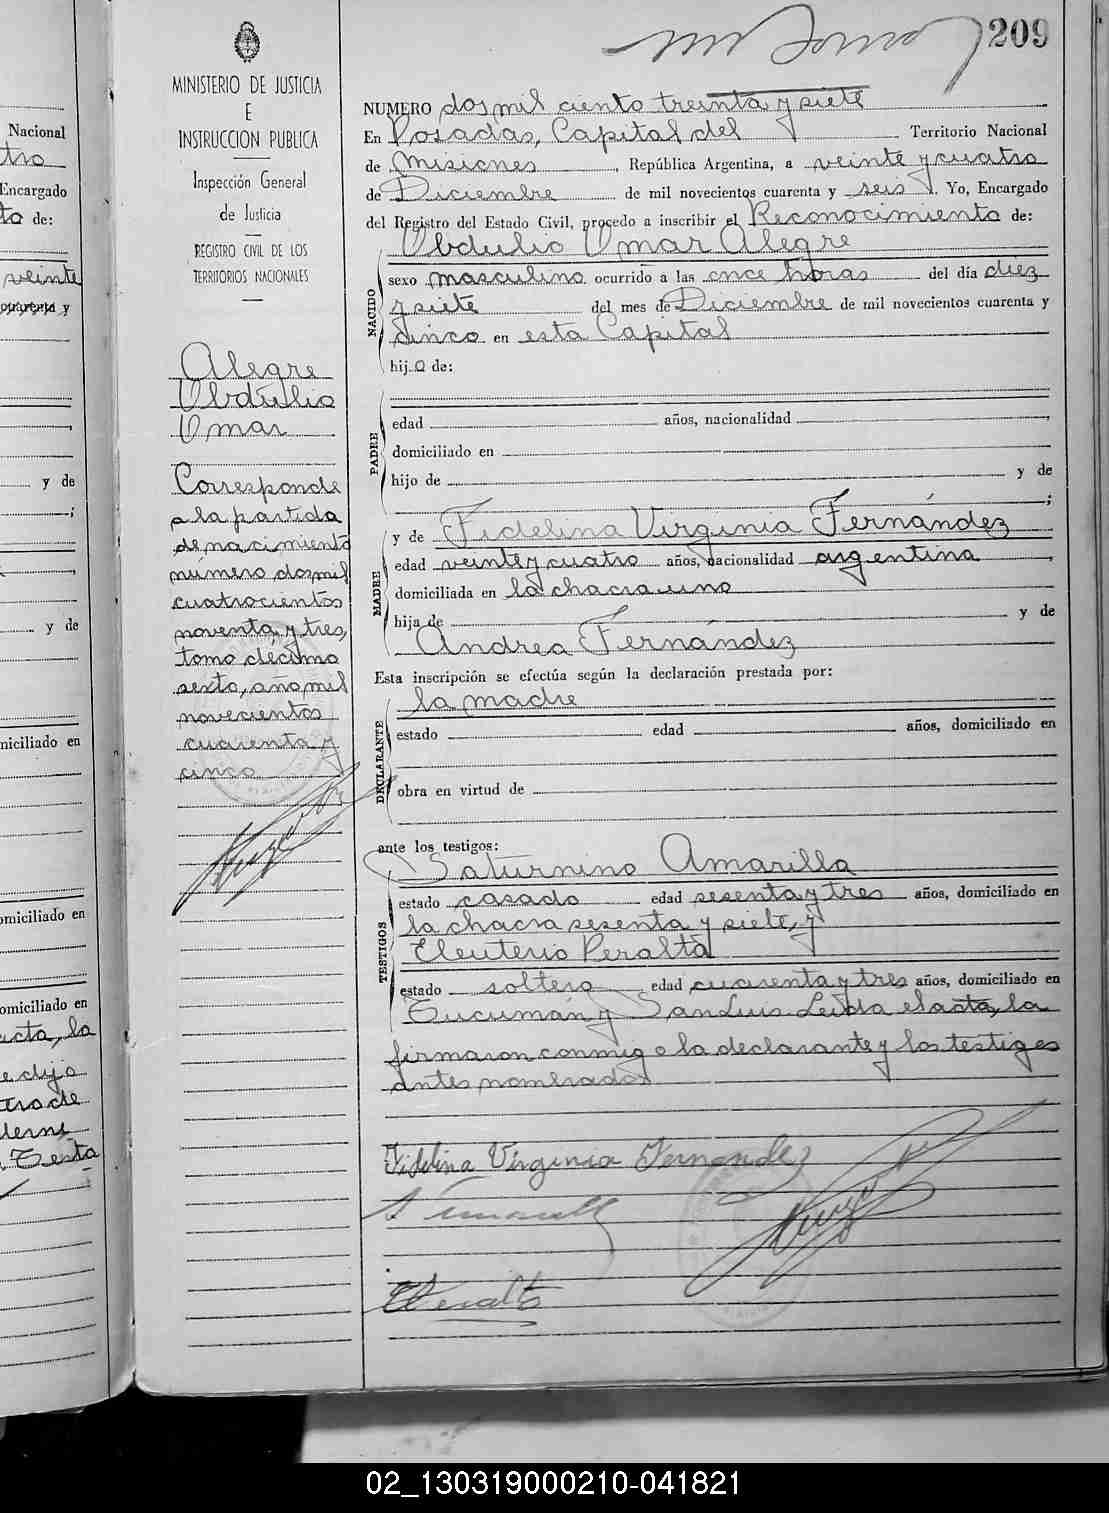 209
MINISTERIO DE JUSTICIA
E
INSTRUCCION PUBLICA
Inspección General
de Justicia
REGISTRO CIVIL DE LOS
TERRITORIOS NACIONALES
Alegre
Obdulio
Omar
Corresponde
a la partida
de nacimiento
número dos mil
cuatrocientos
noventa y tres,
tomo décimo
sexto, año mil
novecientos
cuarenta y
cinco
NUMERO dos mil ciento treinta y siete
En Posadas, Capital del Territorio Nacional
de Misiones, República Argentina, a veinte y cuatro
de Diciembre de mil novecientos cuarenta y seis. Yo, Encargado
del Registro del Estado Civil, procedo a inscribir el Reconocimiento de:
Obdulio Omar Alegre
NACIDO
sexo masculino ocurrido a las once horas del día diez
y siete del mes de Diciembre de mil novecientos cuarenta y
cinco en esta Capital
hijo de:
PADRE
edad años, nacionalidad
domiciliado en
hijo de y de
;
MADRE
y de Fidelina Virginia Fernández
edad veinte y cuatro años, nacionalidad argentina
domiciliada en la chacra uno
hija de y de
Andrea Fernández
Esta inscripción se efectúa según la declaración prestada por:
la madre
DECLARANTE
estado edad años, domiciliado en
obra en virtud de
ante los testigos:
Saturnino Amarilla
TESTIGOS
estado casado edad sesenta y tres años, domiciliado en
la chacra sesenta y siete, y
Eleuterio Peralta
estado soltero edad cuarenta y tres años, domiciliado en
Tucumán y San Luis. Leida el acta, la
firmaron conmigo la declarante y los testigos
antes nombrados
Fidelina Virginia Fernandez
Nacional
Encargado
to de:
veinte
cuarenta y
y de
;
y de
miciliado en
omiciliado en
omiciliado en
acta, la
e dijo
02_130319000210-041821